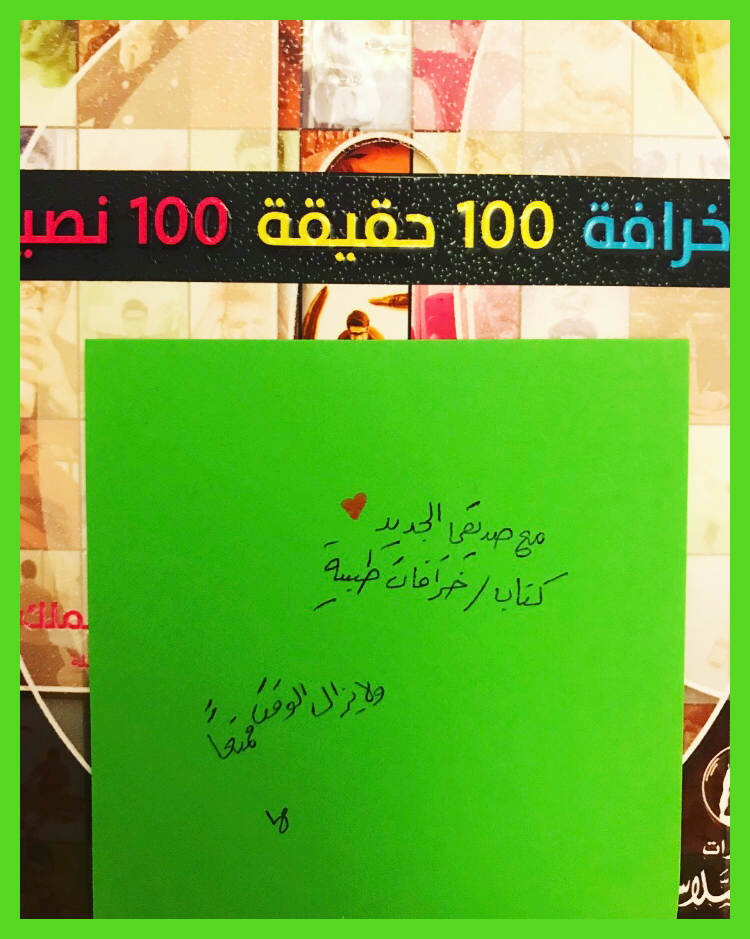 خرافة 100 حقيقة 100 نصي
مع صديقي الجديد
كتاب / خرافات طبية
ولا يزال الوقت
ممتعاً